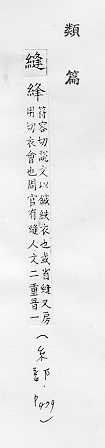 類篇
縫 綘
符容切說文以鍼紩衣也或省縫又房
用切衣會也周官有縫人文二重音一
P479)